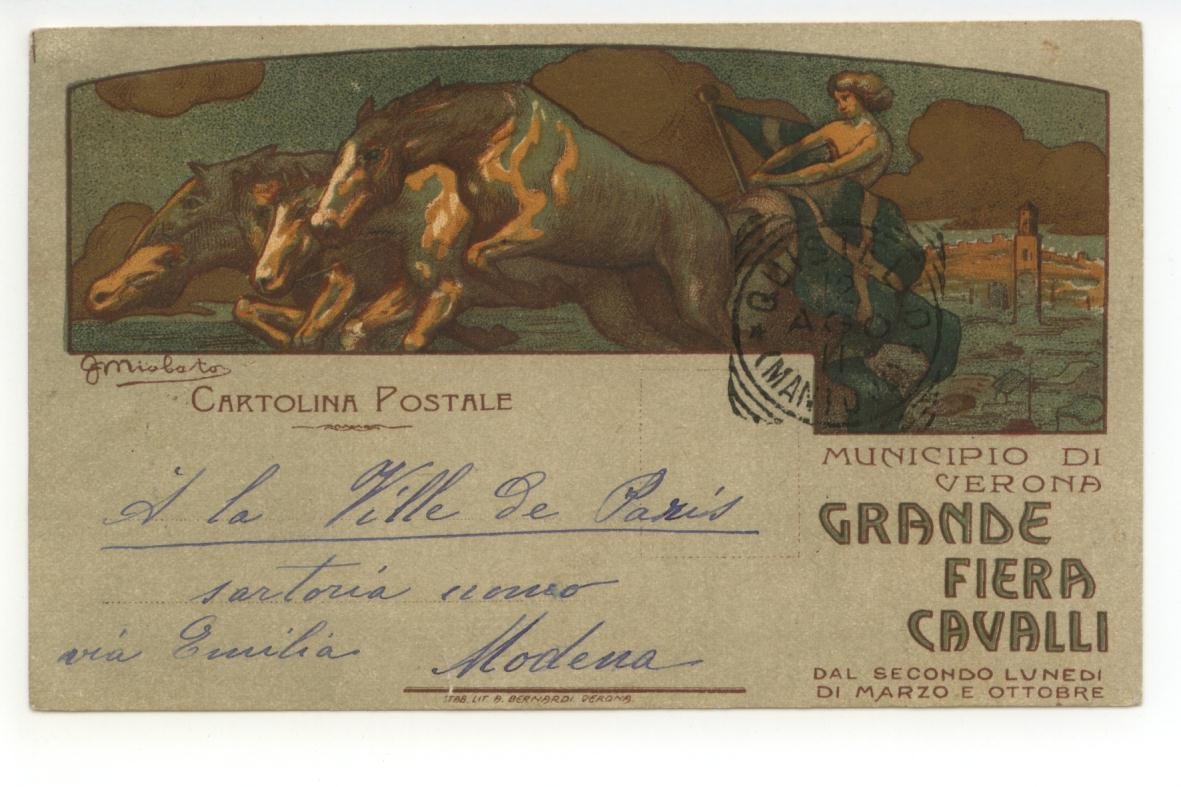 G Miolato
CARTOLINA POSTALE
QUISTELLO
12
AGO
11
(MAN
A la Ville de Paris
sartoria uomo
via Emilia Modena
STAB. LIT. A. BERNARDI. VERONA.
MUNICIPIO DI
VERONA
GRANDE
FIERA
CAVALLI
DAL SECONDO LUNEDI
DI MARZO E OTTOBRE